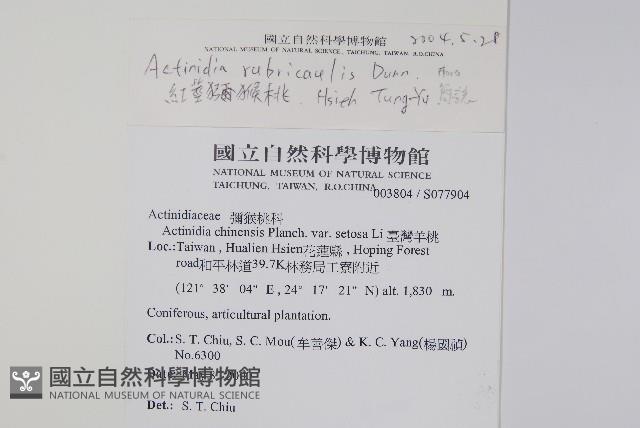 國立自然科學博物館 2004.5.28
NATIONAL MUSEUM OF NATURAL SCIENCE, TAICHUNG, TAIWAN, R.O.CHINA
Actinidia rubricaulis Dunn.
紅莖獼猴桃. Hsieh Tung-Yu
國立自然科學博物館
NATIONAL MUSEUM OF NATURAL SCIENCE
TAICHUNG, TAIWAN, R.O.CHINA
003804 / S077904
Actinidiaceae 獼猴桃科
Actinidia chinensis Planch. var. setosa Li 臺灣羊桃
Loc.:Taiwan , Hualien Hsien花蓮縣 , Hoping Forest
road和平林道39.7K林務局工寮附近
(121° 38' 04" E , 24° 17' 21" N) alt. 1,830 m.
Coniferous, articultural plantation.
Col.: S. T. Chiu, S. C. Mou(牟善傑) & K. C. Yang(楊國禎)
No.6300
國立自然科學博物館
NATIONAL MUSEUM OF NATURAL SCIENCE
Det.: S. T. Chiu